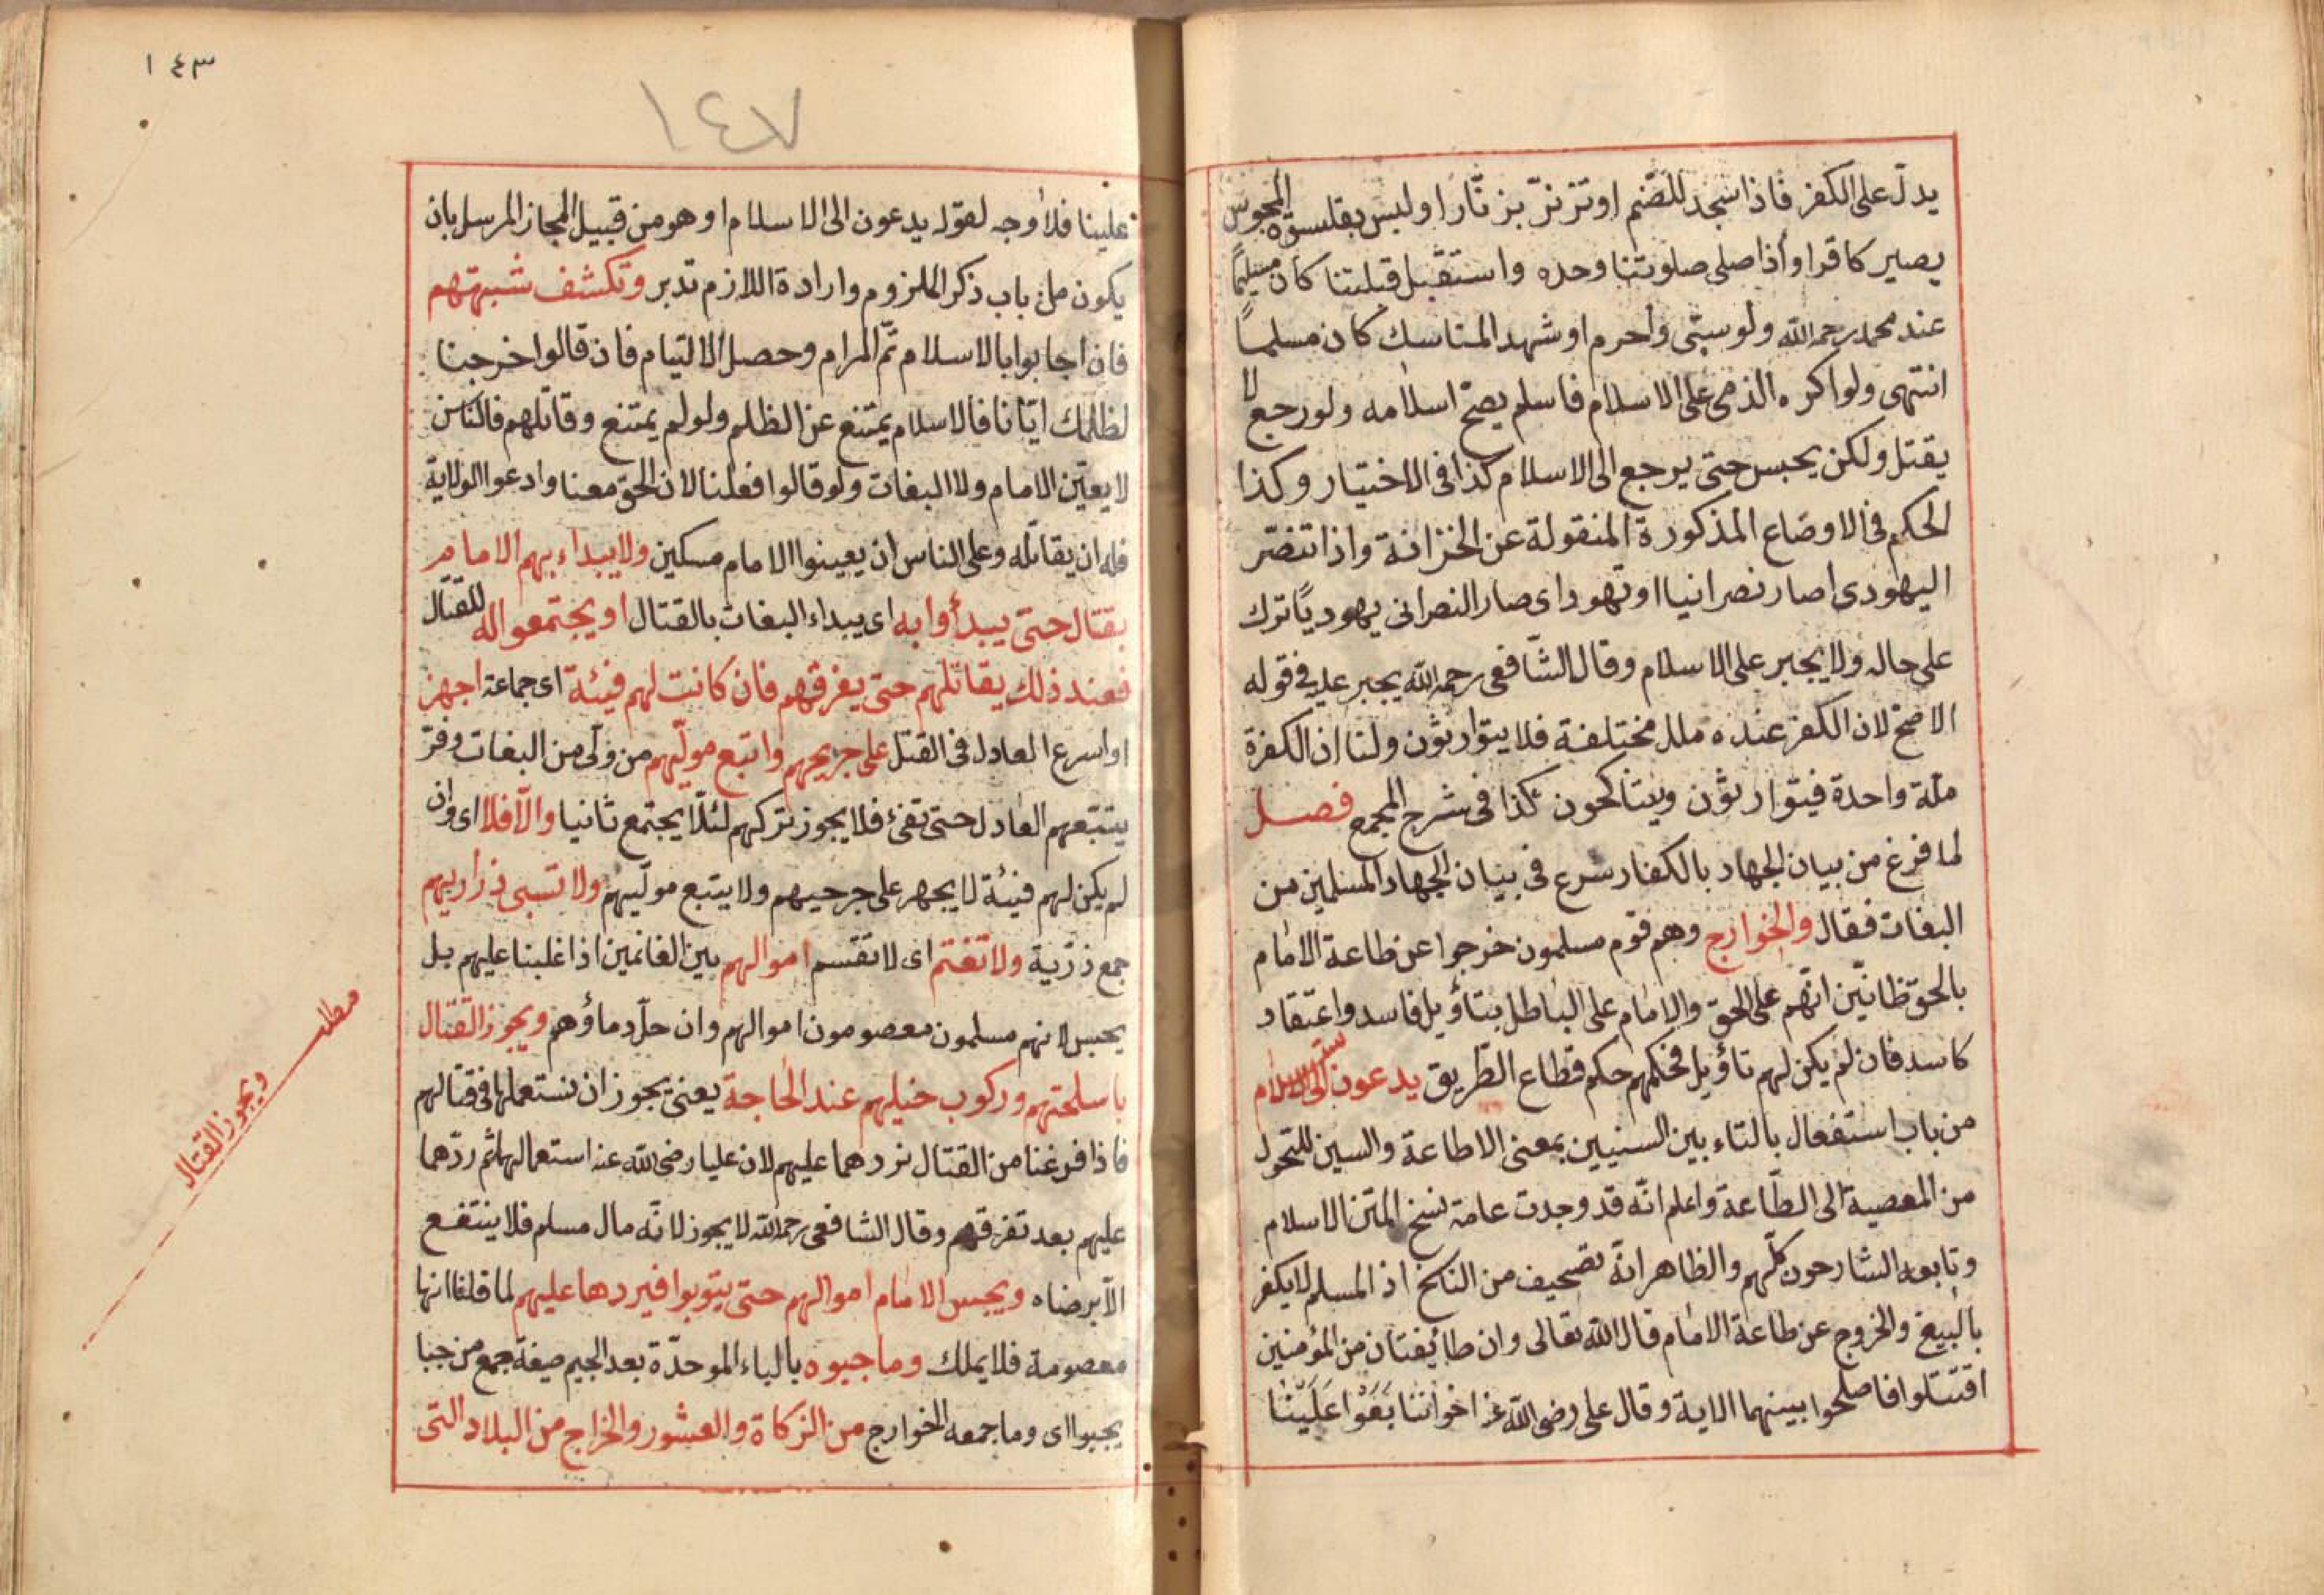 يدل على الكفر فاذا سجد للصنم او تزنر بزنارا ولبس بقلنسوة المجوس
يصير كافرا واذا صلى صلوتنا وحده واستقبل قبلتنا كان مسلمًا
عند محمد رحمه الله ولو واحرم او شهد المناسك كان مسلما
انتهى ولو اكره الذمى على الاسلام فاسلم يصحّ اسلامه ولو رجع لا
يقتل ولكن يحبس حتى يرجع الى الاسلام كذا فى الاختيار وكذا
الحكم فى الاوضاع المذكورة المنقولة عن الخزانة واذا تنصّر
اليهودى اصار نصرانيا او تهود اى صار النصرانى يهوديًا ترك
على حاله ولا يجبر على الاسلام وقال الشافعى رحمه الله يجبر عليه فى قوله
الاصح لان الكفر عنده ملل مختلفة فلا يتوارثون ولنا ان الكفرة
ملّة واحدة فيتوارثون ويتناكحون كذا فى شرح المجمع فصل
لما فرغ من بيان الجهاد بالكفار شرع فى بيان الجهاد المسلمين من
البغات فقال والخوارج وهم قوم مسلمون خرجوا عن طاعة الامام
بالحق ظانّين انهم على الحق والامام على الباطل بتاؤيل فاسد واعتقاد
كاسد فان لم يكن لهم تاؤيل فحكمهم حكم قطاع الطّريق يدعون الى الاسلام
من باب استفعال بالتاء بين السنيين بمعنى الاطاعة والسين للتحول
من المعصية الى الطّاعة واعلم انّه قد وجدت عامة نسخ المتن الاسلام
وتابعه الشارحون كلّهم والظاهر انّه تصحيف من الناسخ اذ المسلم لا يكفر
بالبيغ والخروج عن طاعة الامام قال الله تعالى وان طائفتان من المؤمنين
اقتتلوا فاصلحوا بينهما الاية وقال على رضى الله عنه اخواننا بَغَوْا عَلَيْنَا
١٤٣
١٤٧
علينا فلا وجه لقوله يدعون الى الاسلام او هو من قبيل المجاز المرسل بان
يكون من باب ذكر الملزوم وارادة اللازم تدبر وتكشف شبهتهم
فان اجابوا بالاسلام تمّ المرام وحصل الالتيام فان قالوا خرجنا
لظلمك ايّانا فالاسلام يمتنع عن الظلم ولو لم يمتنع وقاتلهم فالناس
لا يعين الامام ولا البغات ولو قالوا فعلنا لان الحق معنا وادعوا الولاية
فله ان يقاتله وعلى الناس ان يعينوا الامام مسكين ولا يبداء بهم الامام
بقتال حتى يبدأوا به اى يبداء البغات بالقتال او يجتمعوا له للقتال
فعند ذلك يقاتلهم حتى يفرقهم فان كانت لهم فيئة اى جماعة اجهز
او اسرع العادل فى القتل على جريحهم واتبع مولّيهم من ولّى من البغات وفرّ
يتبعهم العادل حتى تفئ فلا يجوز تركهم لئلّا يجتمع ثانيا والّا فلا اى وان
لم يكن لهم فيئة لا يجهز على جرحيهم ولا يتبع مولّيهم ولا تسبى ذراريهم
جمع ذرّية ولا تغتم اى لا تقسم اموالهم بين الغانمين اذا غلبنا عليهم بل
يحبس لانهم مسلمون معصومون اموالهم وان حلّ دماؤهم ويجوز القتال
باسلحتهم وركوب خيلهم عند الحاجة يعنى يجوز ان نستعملها فى قتالهم
فاذا فرغنا من القتال نردهما عليهم لان عليا رضى الله عنه استعمالها ثم ردّهما
عليهم بعد تفرقهم وقال الشافعى رحمه الله لا يجوز لانّه مال مسلم فلا ينتفع
الّا برضاه ويحبس الامام اموالهم حتى يتوبوا فيردها عليهم لما قلنا انها
معصومة فلا يملك وما جبوه بالباء الموحدّة بعد الجيم صيغة جمع من جبا
يجبوا اى وما جمعه الخوارج من الزكاة والعشور والخراج من البلاد التى
مطلب
ويجوز القتال